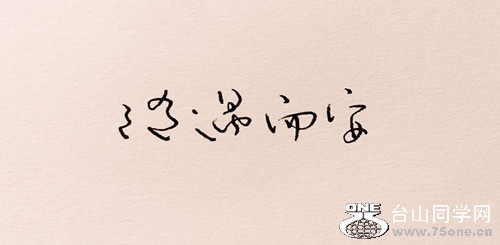 随遇而安
ONE
台山同学网
www.75one.cn